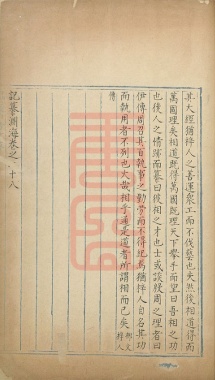 其大經猶梓人之善運衆工而不伐藝也夫然後相道得而
萬國理矣相道既得萬國既理天下擧手而望曰吾相之功
也後人之循跡而慕曰彼相之才也士或談殷周之理者曰
伊傅周召其百執事之勤勞而不得紀焉猶梓人自名其功
而執用者不列也大哉相乎通是道者所謂相而已矣柳文梓人
傳
記纂淵海卷之一十八